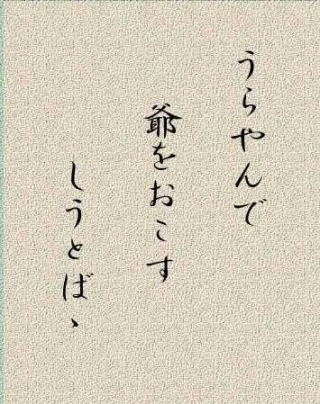 うらやんで
爺をおこす
しうとばゝ